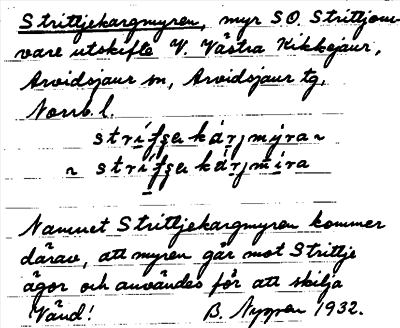 Strittjekargmyren, myr SO. Strittjom-
vare utskifte V. Västra Kikkejaur,
Arvidsjaur sn, Arvidsjaur tg,
Norrb. l.
Namnet Strittjekargmyren kommer
därav, att myren går mot Strittje
ägor och användes för att skilja
Vänd! B. Nyppen 1932.